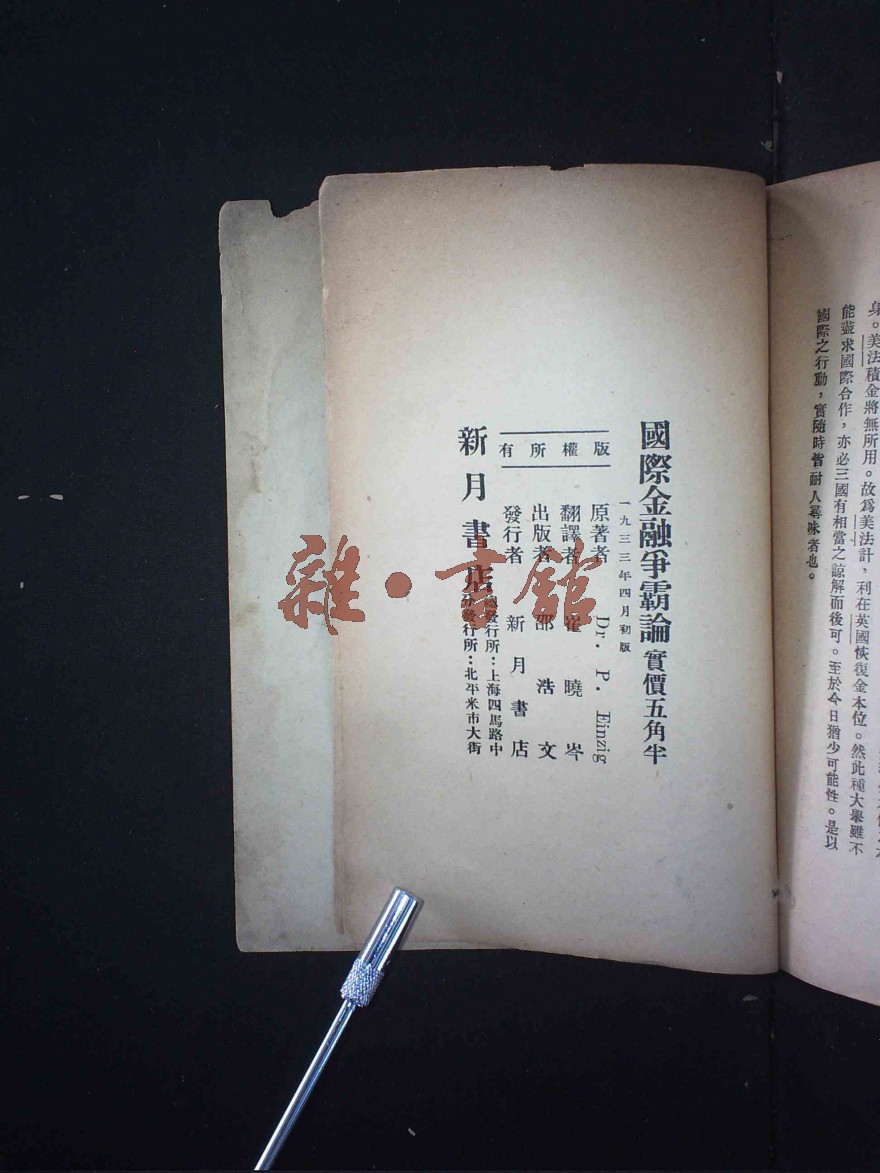 身。美法積金將無所用。故爲美法計，利在英國恢復金本位。然此種大舉雖不
能盡求國際合作，亦必三國有相當之諒解而後可。至於今日猶少可能性。是以
國際之行動，實隨時皆耐人尋味者也。
國際金融爭霸論 實價五角半
一九三三年四月初版
版權所有
原著者 Dr. P. Einzig
翻譯者 崔曉岑
出版者 邵浩文
發行者 新月書店
新月書店
總發行所：上海四馬路中
分發行所：北平米市大街
雜·書館